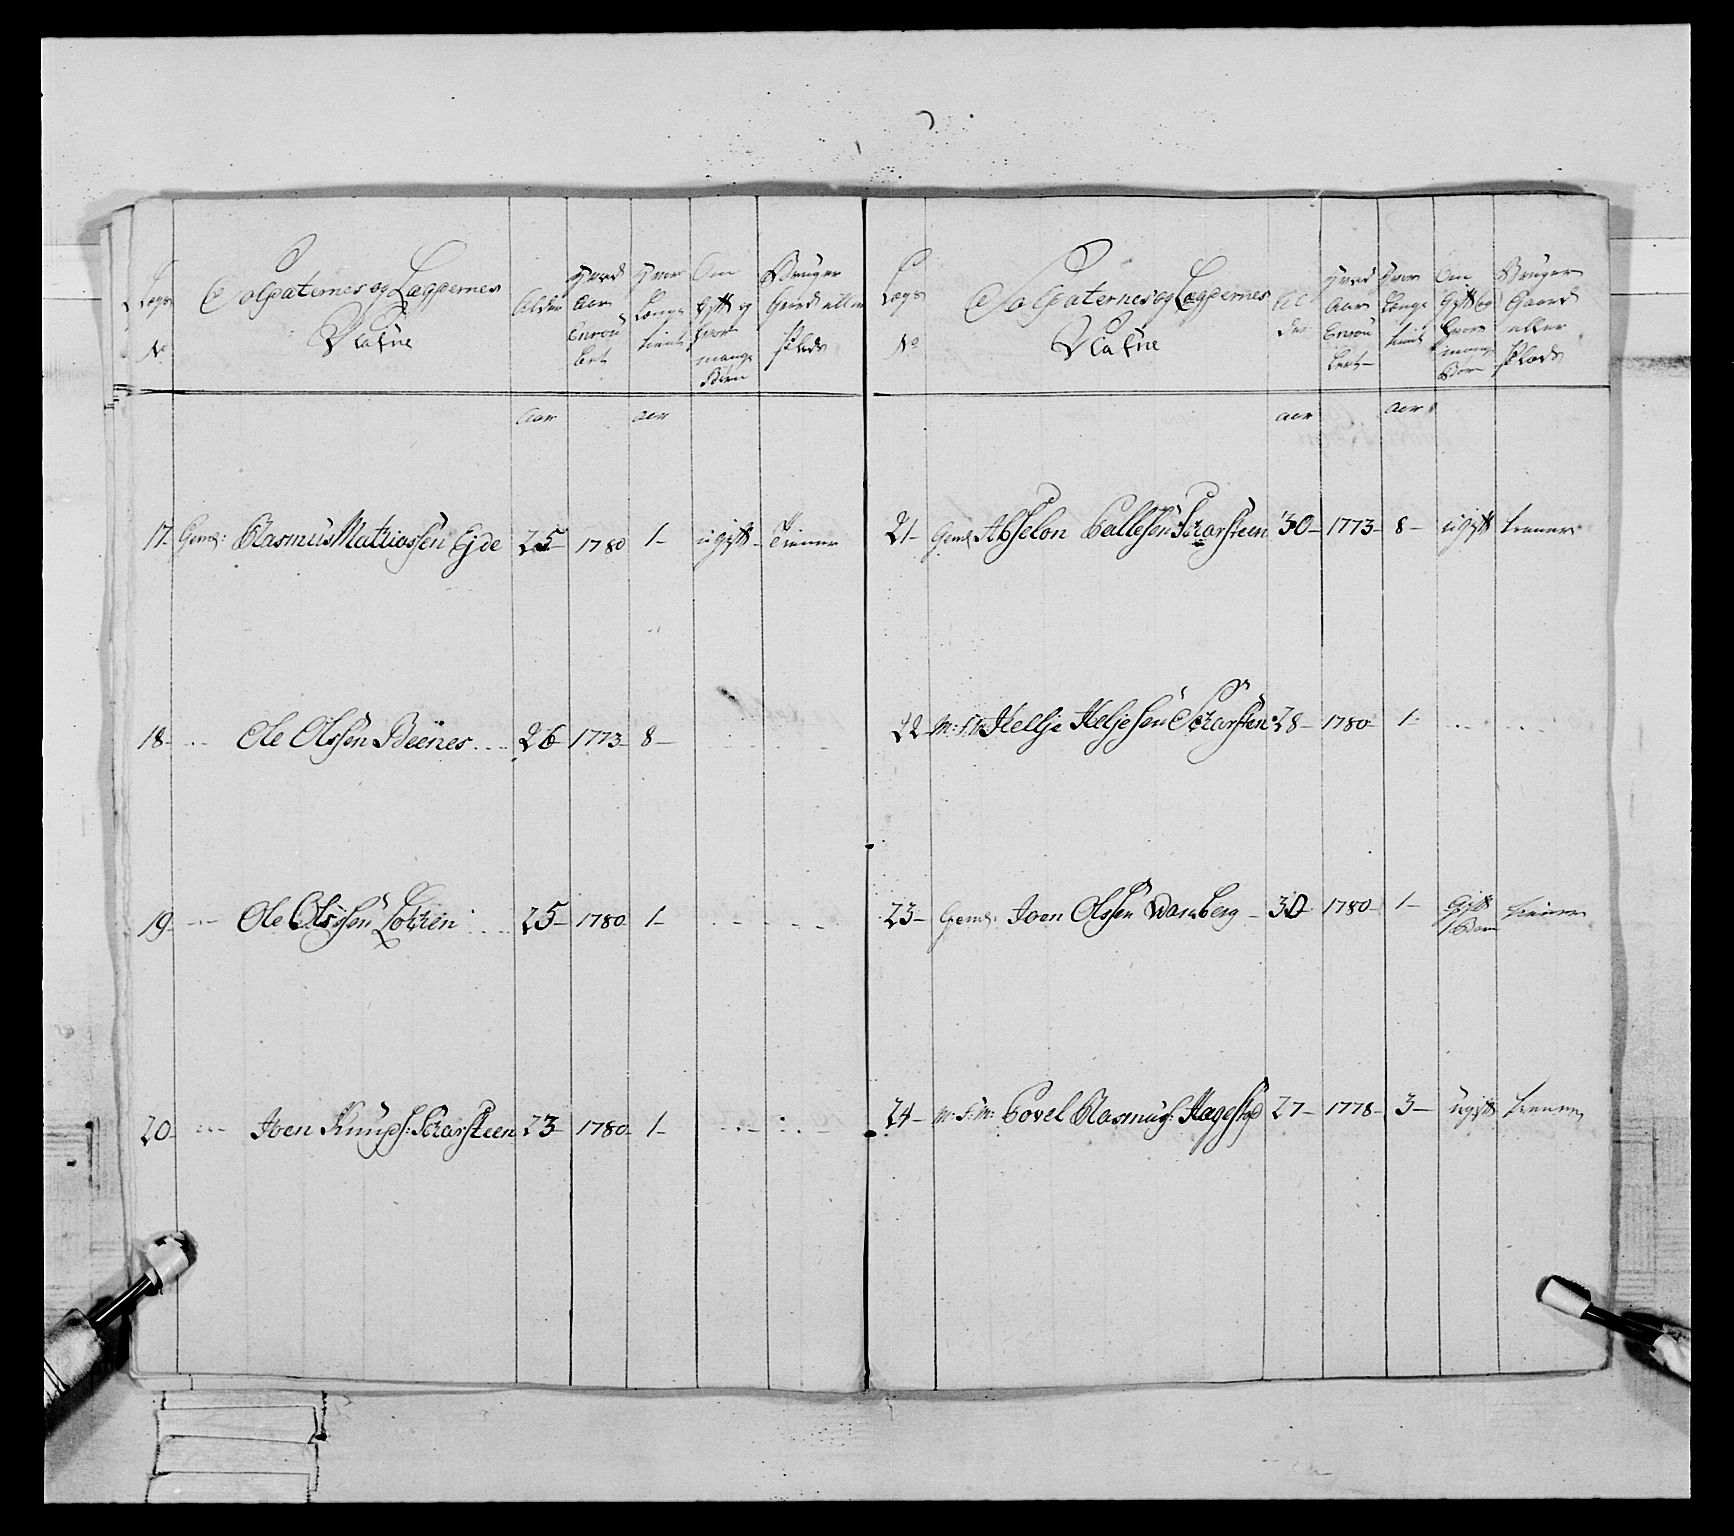 Lægs No
Soldaternes og Lægdernes Nafne
Alder
Hvad Aar Enroulert
Hvor Længe tient
Om Gift og hvor mange Børn
Bruger Gaard eller Plads
Aar aar
17- Gem: Rasmus Matiassen Eide 25- 1780 1- ugift - Tiener
18- - - Ole Olssen Beenes . . . 26- 1773- 8- - - -
19- - - Ole Olssen . . . 25- 1780 1- - - -
20- - - Joen Knuds: Skarsteen 23- 1780- 1- - - -
Lægs No
Soldaternes og Lægdernes Nafne
Alder
Hvad Aar Enroulert-
Hvor Længe tient
Om Gift og hvor mange Børn
Bruger Gaard eller Plads
aar aar
21- Gem: Absselon Pallesen Skarsteen 30- 1773- 8- ugift tiener
22- Hellje Heljesen Skarsten 28- 1780- 1- - - -
23- Gem: Joen Olssen - 30- 1780- 1- Gift tiener
1 Barn
24- Povel Rasmus: 27- 1778- 3- ugift tiener